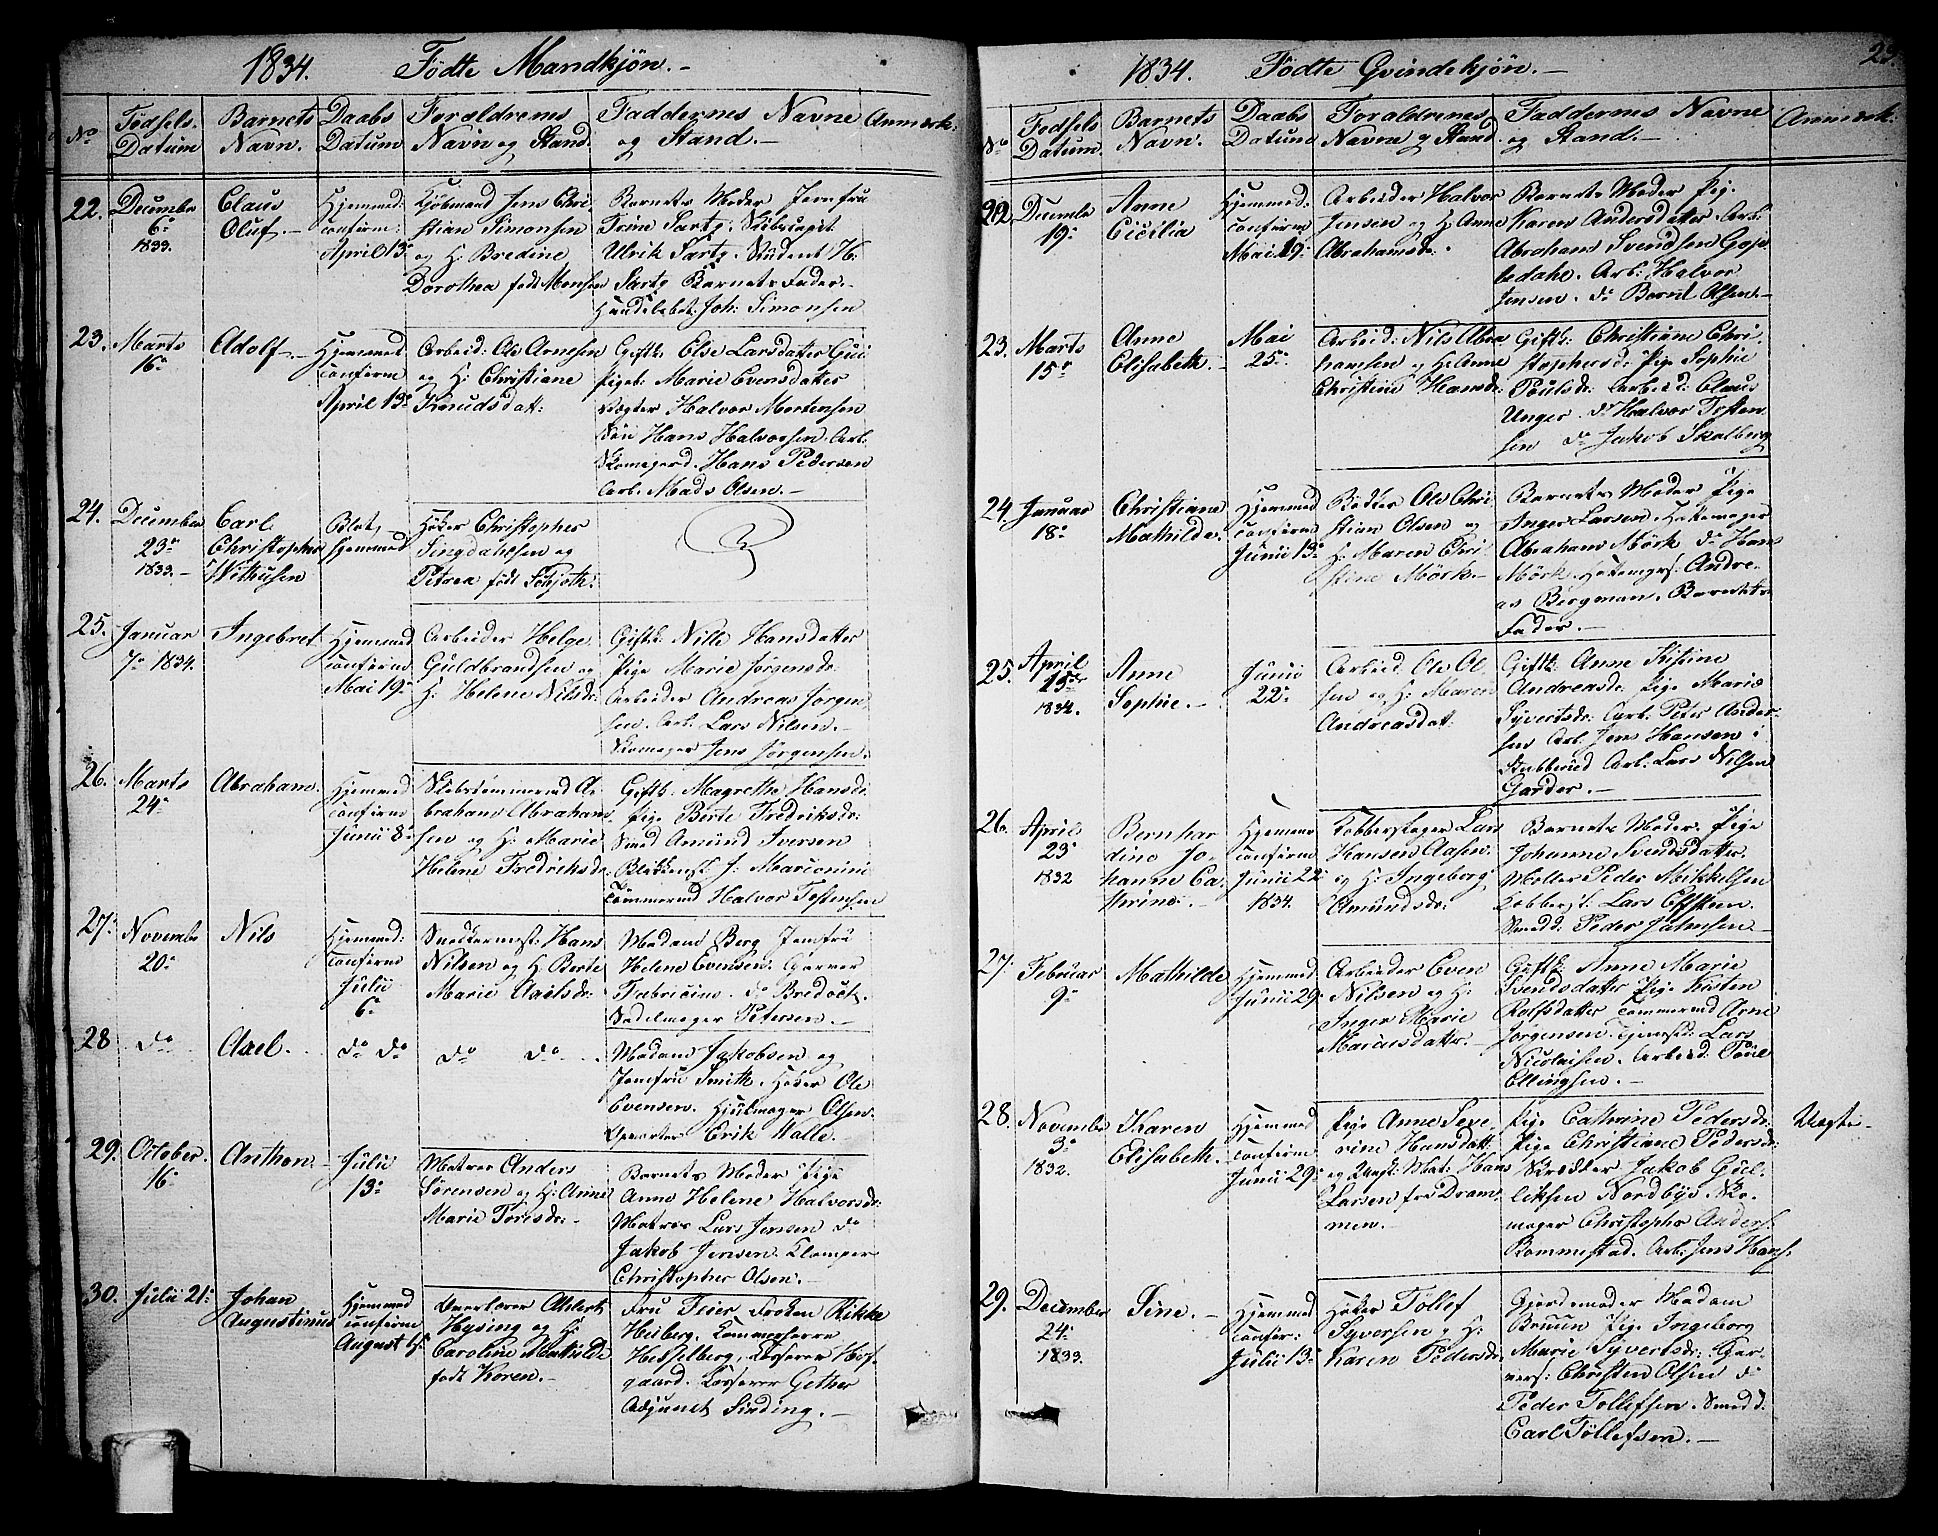 1834. Födte Mandkjön.-
No
Födsels Datum
Barnets Navn.
Daabs Datum
Forældrenes Navn og Stand
Faddernes Navne og Stand.-
Anmærk:
22.
December
6te
1833.
Claus
Oluf.-
Hjemmed:
confirm:
April 13.
Kjøbmand Jens Chri-
stian Simonsen
og H: Bredine
Dorothea født Monsen
Barnets Moder Jomfru
Trine Sartz. Skibscapit
Ulrik Sartz. Student H.
Sartz Barnets Fader.
Joh: Simonsen
23.
Marts
16de
Adolf.-
Hjemmed
confirm
April 13de
Arbeid: Ole Arnesen
og H: Christiane
Knudsdatt:
Giftk: Else Larsdatter
Piget: Marie Evensdatter
Vægter Halvor Mortensen
Søn Hans Halvorsen. Arb.
Skomagerd. Hans Pedersen
Arb. Mads Olsen.-
24.
December
23de
1833.-
Carl
Christopher
Withusen
Blot
hjemmed
Høker Christopher
Singdahlsen og
Petrea født Schjöth.
25.
Januar
7de 1834.
Ingebret
Hjemmed
confirm
Mai 19de
Arbeider Helge
Guldbrandsen og
H: Helene Nilsdr:
Giftk: Nille Hansdatter
Pige Marie Jörgensdr.
Arbeider Andreas Jörgen-
sen. Arb: Lars Nilsen.-
Skomager Jens Jörgensen:
26.
Marts
24de
Abraham.
Hjemmed
confirm
Junii 8de
Skibstömmermd A-
braham Abraham-
sen og H: Marie
Helene Fredriksdr:
Giftk: Magrethe Hansd:
Pige Berte Fredriksdr:
Smed Amund Iversen
Blikkensl. J: Marconini
Tömmermd Halvor Tostensen
27.
November
20de
Nils
Hjemmed:
confirm
Julii
6te
Snedkermst: Hans
Nilsen og H: Berte
Marie Carlsdr:
Madam Berg Jomfru
Helene Evensen. Garver
Fabricius. do Bredöck.
Sadelmager Petersen.-
28
do
Axel.
do do
do do
Madam Jakobsen og
Jomfru Smith. Høker Ole
Evensen. Hjulmager Olsen.
Erik Walle.
29.
October
16de
Anthon.-
Julii
13de
Matros Anders
Sörensen og H: Anne
Marie Toresdr:-
Barnets Moder Pige
Anne Helene Halvorsdr:
Matros Lars Jensen do
Jakob Jensen. Klamper
Christopher Olsen.-
30.
Julii 21de
Johan
Augustinus
Hjemmed
confirm
August 15.
Overlærer Ahlert
Hysing og H:
Caroline Mathilde
født Koren.-
Fru Feier, Frøken Rikke
Heiberg. Kammerherre
Hesselberg.
gaard. Gether
Adjunct Sinding.-
1834. Födte Qvindekjön.-
23.
No
Födsels Datum.
Barnets Navn.
Daabs Datum
Forældrenes Navne og Stand
Faddernes Navne og Stand.-
Anmærk:
22.
Decembr
19de
Anne
Cicilia
Hjemmed:
confirm
Mai 19de
Arbeider Halvor
Jensen og H: Anne
Abrahamsdr:
Barnets Moder Pig.
Karen Andersdatter. Arb:
Abraham Svendsen
Arb: Halvor
Jensen. do Bernt Olsen.-
23.
Marts
15de
Anne
Elisabeth.-
Mai
25de
Arbeid: Nils Abra-
hamsen og H: Anne
Christine Hansdr:
Giftk: Christiane Chri-
stophersd: Pige Sophie
Poulsdr. Arbeid: Claus
Unger. do Halvor Tosten-
sen do Jakob Skalberg
24.
Januar
18de
Christiane
Mathilde.
Hjemmed
confirm
Junii 13de
Bödker Ole Chri-
stian Olsen og
H: Maren Chri-
stine Mörk.-
Barnets Moder Pige
Inger Larsen. Hattemager
Abraham Mörk do Hans
Mörk. Hattemgrs: Andre-
as Bergman. Barnets
Fader.-
25.
April
15de
1834.
Anne
Sophie.-
Junii
22de
Arbeid. Ole Ol-
sen og H: Maren
Andreasdat:
Giftk: Anne Kistine
Andreasdr. Pige Marie
Syvertsdr: Arb. Peter Ander-
sen Arb: Jens Hansen i
Stubberud Arb: Lars Nilsen
Garder.-
26.
April
23de
1832
Bernhar-
dine Jo-
hanne Ca-
thrine.-
Hjemmed
confirm
Junii 22de
1834.
Kobberslager Lars
Hansen Aasen.
og H: Ingeborg
Amundsdr:
Barnets Moder. Pige
Johanne Svendsdatter.
Möller Peder Mikkelsen
Kobbersl. Lars
Smedd. Peder
27.
Februar
9de
Mathilde
Hjemmed
Junii 29de
Arbeider Even
Nilsen og H:
Inger Marie
Mariusdatter.-
Giftk: Anne Marie
Svendsdatter Pige Kirsten
Rolfsdatter Tömmermd Arne
Jörgensen. Lars
Nicolaisen. Arbeid:
Ellingsen.-
28.
November
3de
1832.
Karen
Elisabeth.-
Hjemmed
confirm
Junii 29de
Pige Anne Seve-
rine Hansdatt:
og Ungk: Mat: Hans
Larsen fra Dram-
men.-
Pige Cathrine Pedersdr:
Pige Christiane Pedersdr.
Jakob Gul-
liksen Nordbye Sko-
mager Christopher Anders:
Rommestad. Arb: Jens Hans:
Uægte.-
29.
December
24de
1833.
Sine.-
Hjemmed
confir:
Julii 13de
Høker Töllef
Syversen og H:
Karen Pedersdr.
Gjordemoder Madam
Bruun Pige Ingeborg
Marie Syvertsdr: Gar-
vers: Christen Olsen do
Peder Tollefsen. Smedd:
Carl Töllefsen.-